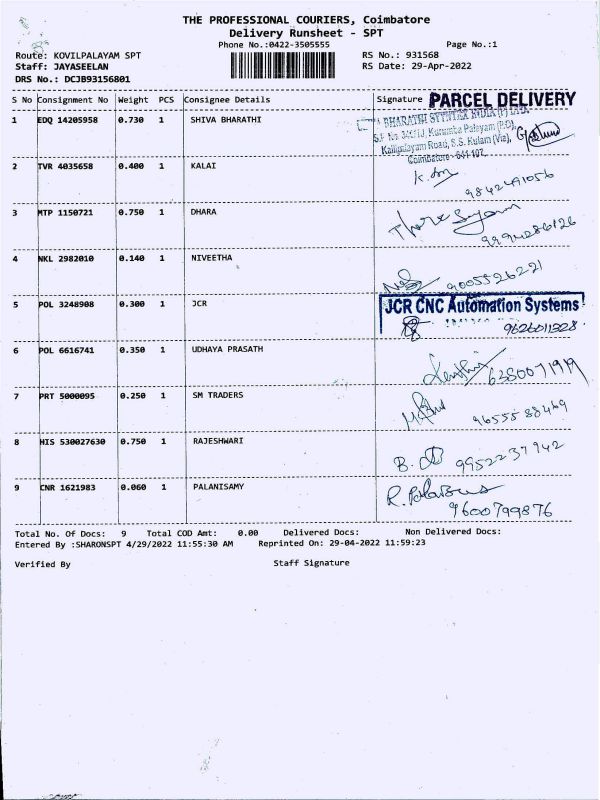 THE PROFESSIONAL COURIERS, Coimbatore
Delivery Runsheet - SPT
Phone No.:0422-3505555 Page No.:1
Route: KOVILPALAYAM SPT RS No.: 931568
Staff: JAYASEELAN RS Date: 29-Apr-2022
DRS No.: DCJB93156801
S No Consignment No Weight PCS Consignee Details Signature PARCEL DELIVERY
1 EDQ 14205958 0.730 1 SHIVA BHARATHI
Kurumba Palayam (P.O),
Kalipalayam Road, S.S. Kulam (Via),
Coimbatore - 641 107.
2 TVR 4035658 0.400 1 KALAI
9842491056
3 MTP 1150721 0.750 1 DHARA
9994286126
4 NKL 2982010 0.140 1 NIVEETHA
9005526221
5 POL 3248908 0.300 1 JCR JCR CNC Automation Systems
9626011328
6 POL 6616741 0.350 1 UDHAYA PRASATH
6380071919
7 PRT 5000095 0.250 1 SM TRADERS
9655588469
8 HIS 530027630 0.750 1 RAJESHWARI
9952237942
9 CNR 1621983 0.060 1 PALANISAMY
9600799876
Total No. Of Docs: 9 Total COD Amt: 0.00 Delivered Docs: Non Delivered Docs:
Entered By :SHARONSPT 4/29/2022 11:55:30 AM Reprinted On: 29-04-2022 11:59:23
Verified By Staff Signature